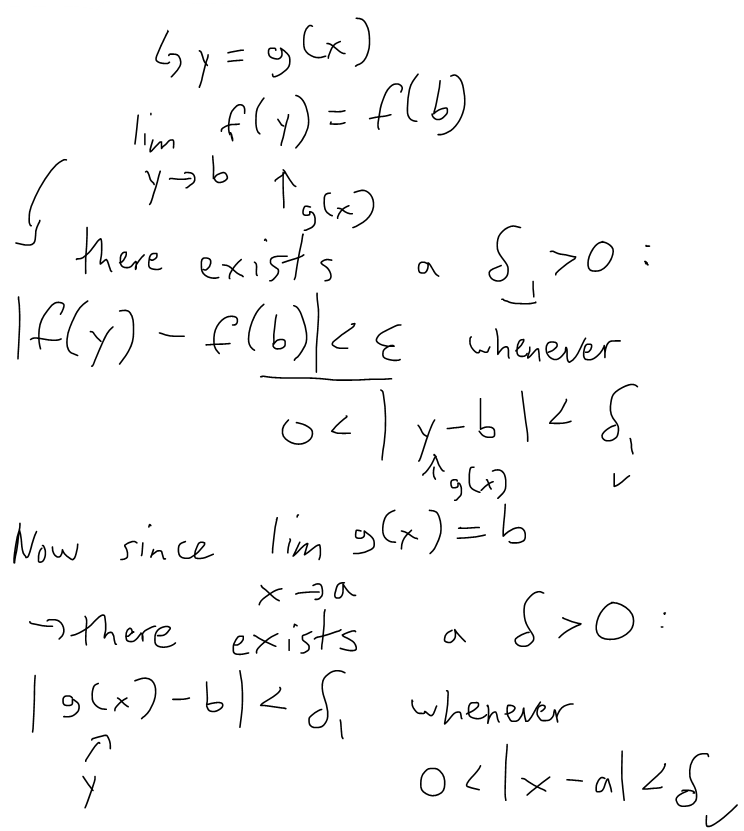 ↳ y = g(x)
lim f(y) = f(b)
y→b ↑ g(x)
there exists a δ₁ > 0 :
|f(y) − f(b)| < ε whenever
0 < | y−b | < δ₁
↑ g(x) ✓
Now since lim g(x) = b
x→a
→ there exists a δ > 0 :
| g(x) − b | < δ₁ whenever
↑
y 0 < |x − a| < δ ✓